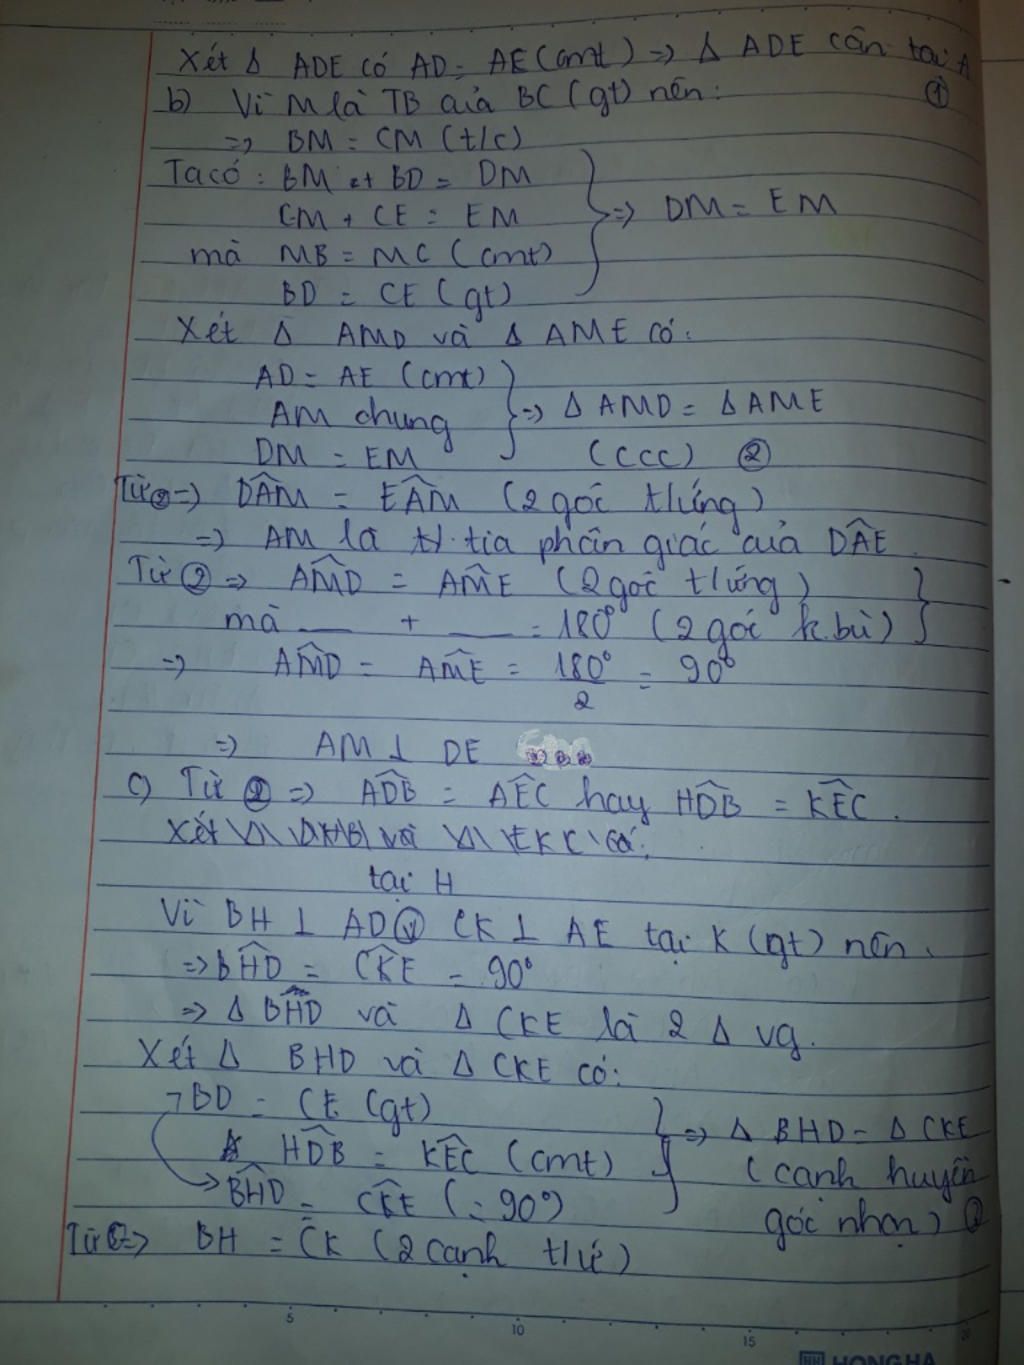 Xét Δ ADE có AD = AE (cmt) => Δ ADE cân tại A
b) Vì M là TB của BC (gt) nên: ①
=> BM = CM (t/c)
Ta có: BM + BD = DM
CM + CE = EM => DM = EM
mà MB = MC (cmt)
BD = CE (gt)
Xét Δ AMD và Δ AME có:
AD = AE (cmt)
AM chung => Δ AMD = Δ AME
DM = EM (ccc) ②
Từ ② => DÂM = EÂM (2 góc t/ứng)
=> AM là tia phân giác của DÂE
Từ ② => AM̂D = AM̂E (2 góc t/ứng)
mà __ + __ = 180° (2 góc k.bù)
=> AM̂D = AM̂E = 180°/2 = 90°
=> AM ⊥ DE
c) Từ ② => AD̂B = AÊC hay HD̂B = KÊC.
tại H
Vì BH ⊥ AD CK ⊥ AE tại K (gt) nên
=> BĤD = CK̂E = 90°
=> Δ BHD và Δ CKE là 2 Δ vg.
Xét Δ BHD và Δ CKE có:
BD = CE (gt)
HD̂B = KÊC (cmt) => Δ BHD = Δ CKE
BĤD = CK̂E (= 90°) (cạnh huyền
góc nhọn)
=> BH = CK (2 cạnh t/ứ)
5 10 15 20
HONG HA